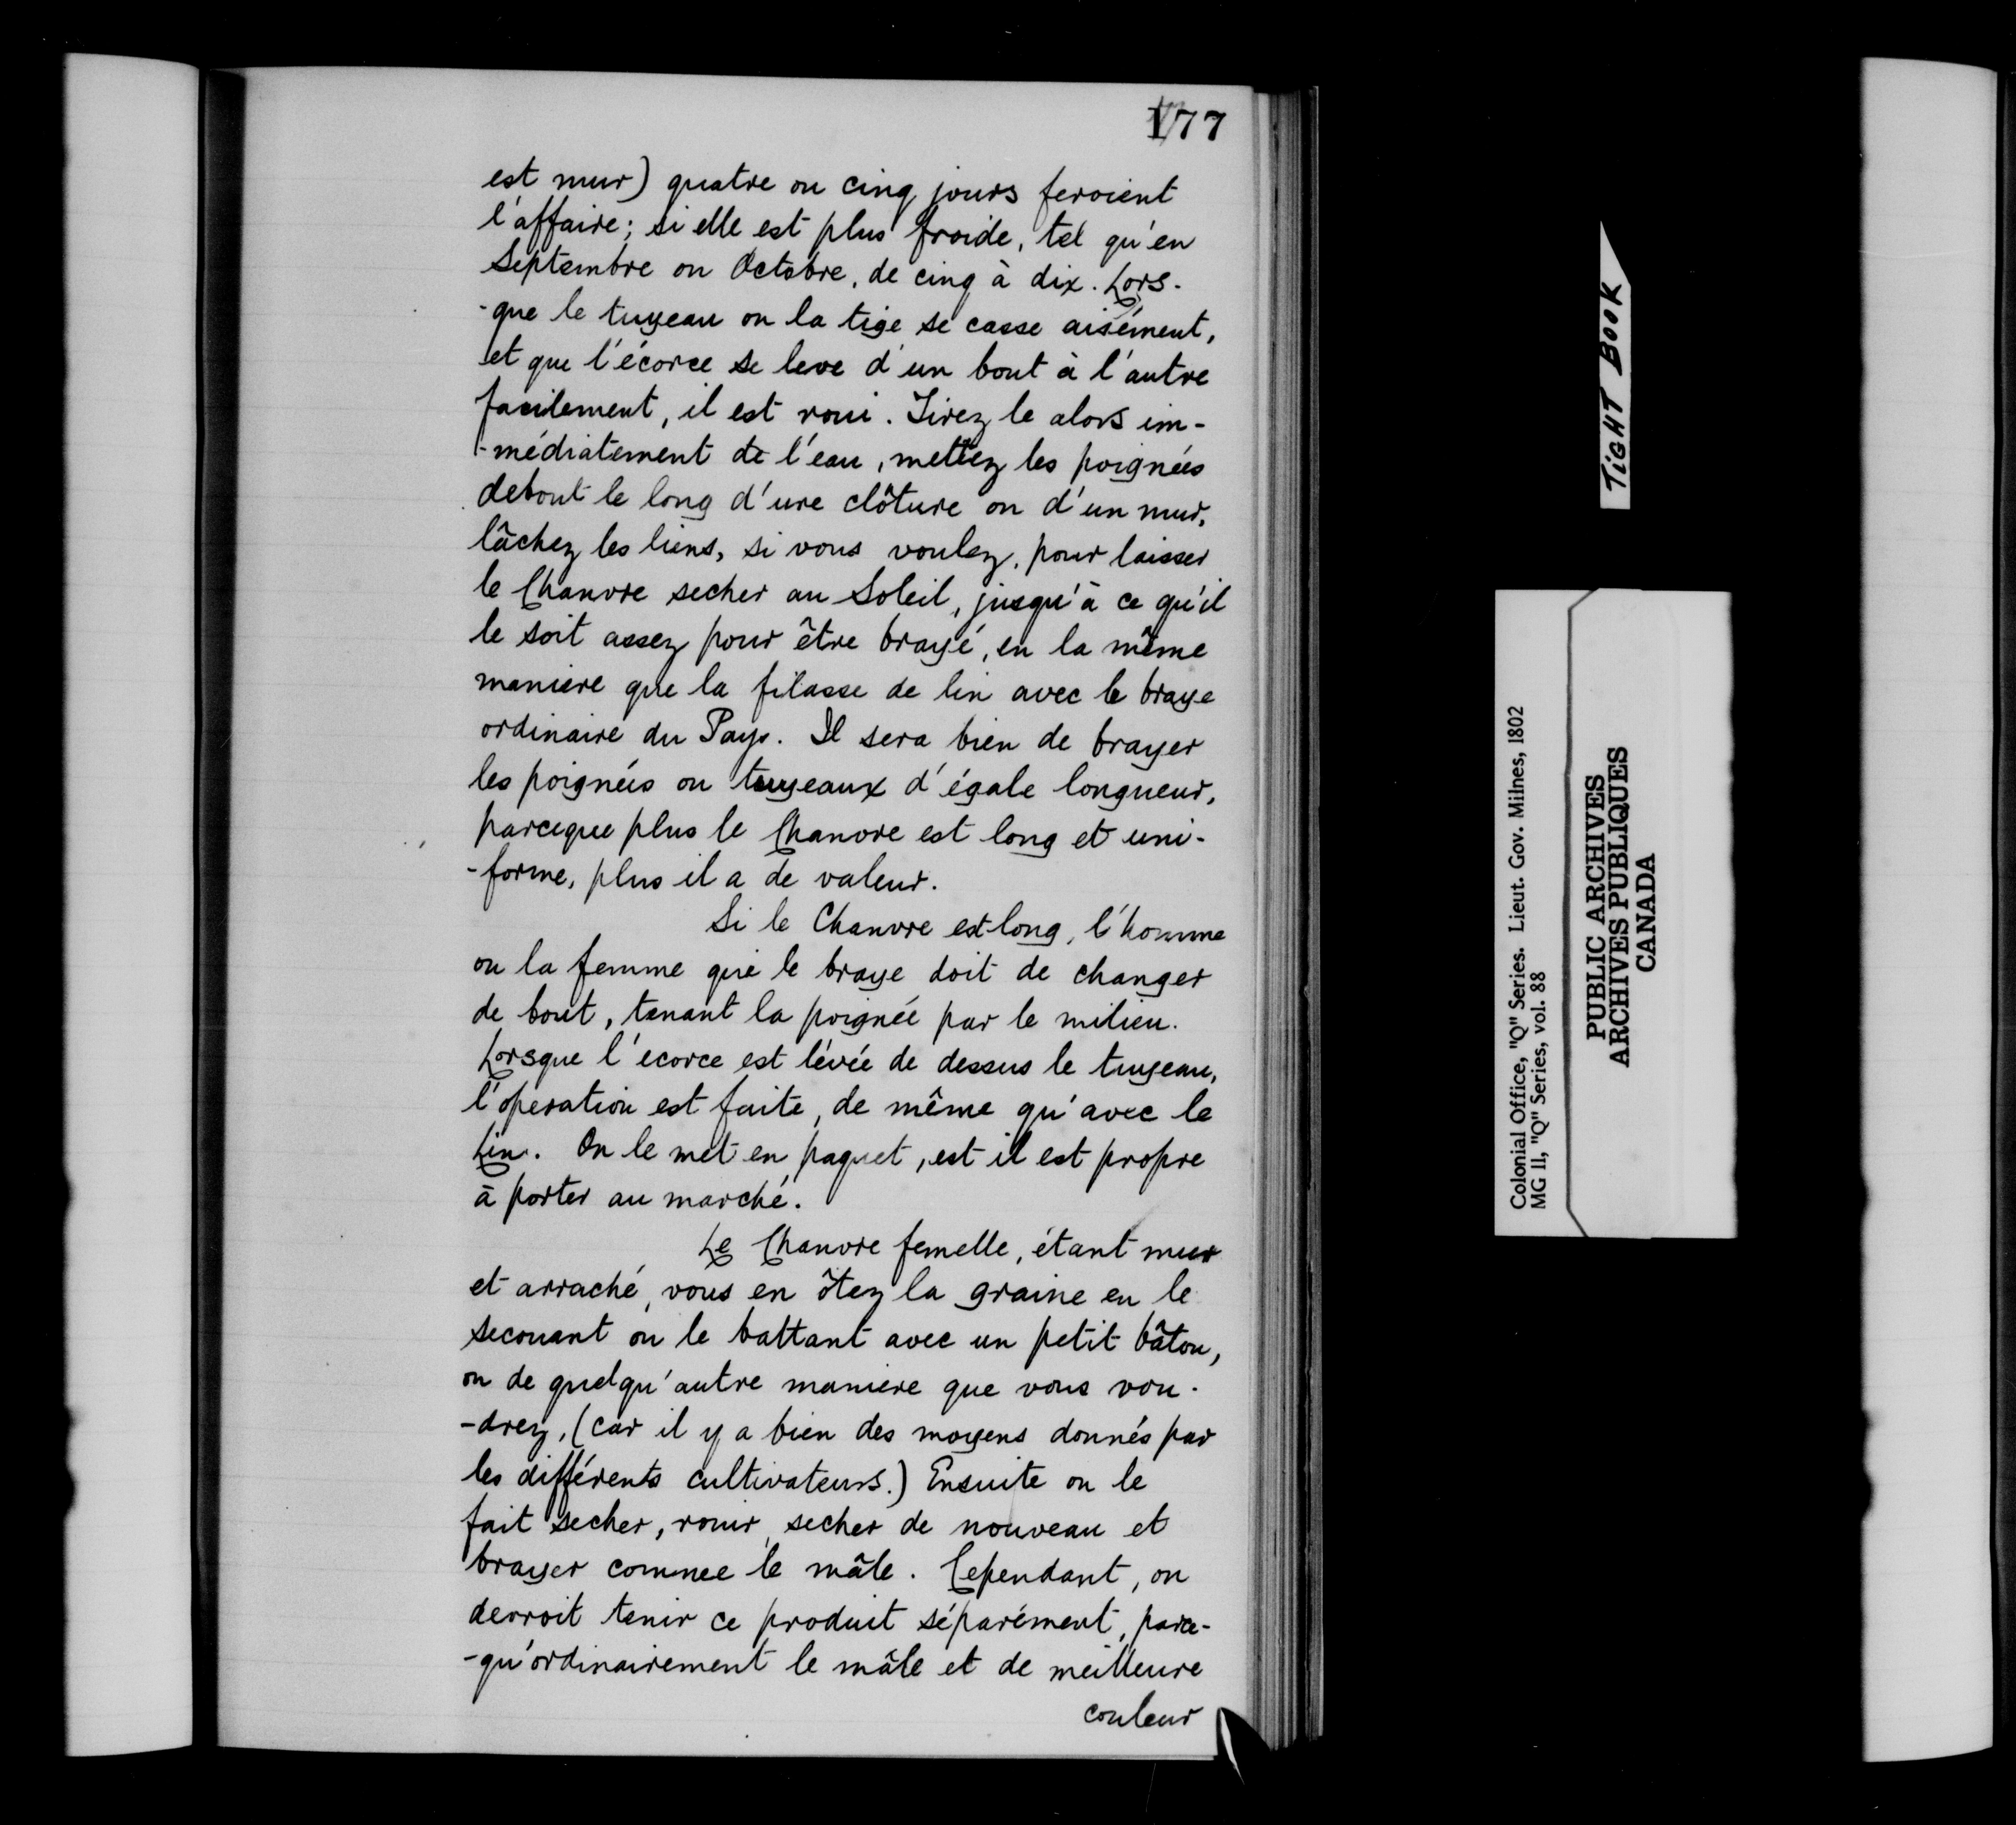 177
est mur) quatre ou cinq jours feroient
l'affaire; si elle est plus froide, tel qu'en
Septembre ou Octobre, de cinq à dix. Lors-
-que le tuyeau ou la tige se casse aisément,
et que l'écorce se leve d'un bout à l'autre
facilement, il est roui. Tirez le alors im-
-médiatement de l'eau, mettez les poignées
debout le long d'une clôture ou d'un mur,
lâchez les liens, si vous voulez, pour laisser
le Chanvre secher au Soleil, jusqu'à ce qu'il
le soit assez pour être brayé, en la même
maniere que la filasse de lin avec le braye
ordinaire du Pays. Il sera bien de brayer
les poignées ou tuyeaux d'égale longueur,
parceque plus le Chanvre est long et uni-
-forme, plus il a de valeur.
Si le Chanvre est long, l'homme
ou la femme qui le braye doit de changer
de bout, tenant la poignée par le milieu.
Lorsque l'ecorce est lévée de dessus le tuyeau,
l'operation est faite, de même qu'avec le
Lin. On le met en paquet, est il est propre
à porter au marché.
Le Chanvre femelle, étant mur
et arraché, vous en ôtez la graine en le
secouant ou le battant avec un petit bâton,
ou de quelqu'autre maniere que vous vou-
-drez, (car il y a bien des moyens donnés par
les différents cultivateurs.) Ensuite on le
fait secher, rouir, secher de nouveau et
brayer comme le mâle. Cependant, on
devroit tenir ce produit séparément, parce-
-qu'ordinairement le mâle et de meilleure
couleur
TIGHT BOOK
Colonial Office, "Q" Series. Lieut. Gov. Milnes, 1802
MG 11, "Q" Series, vol. 88
PUBLIC ARCHIVES
ARCHIVES PUBLIQUES
CANADA